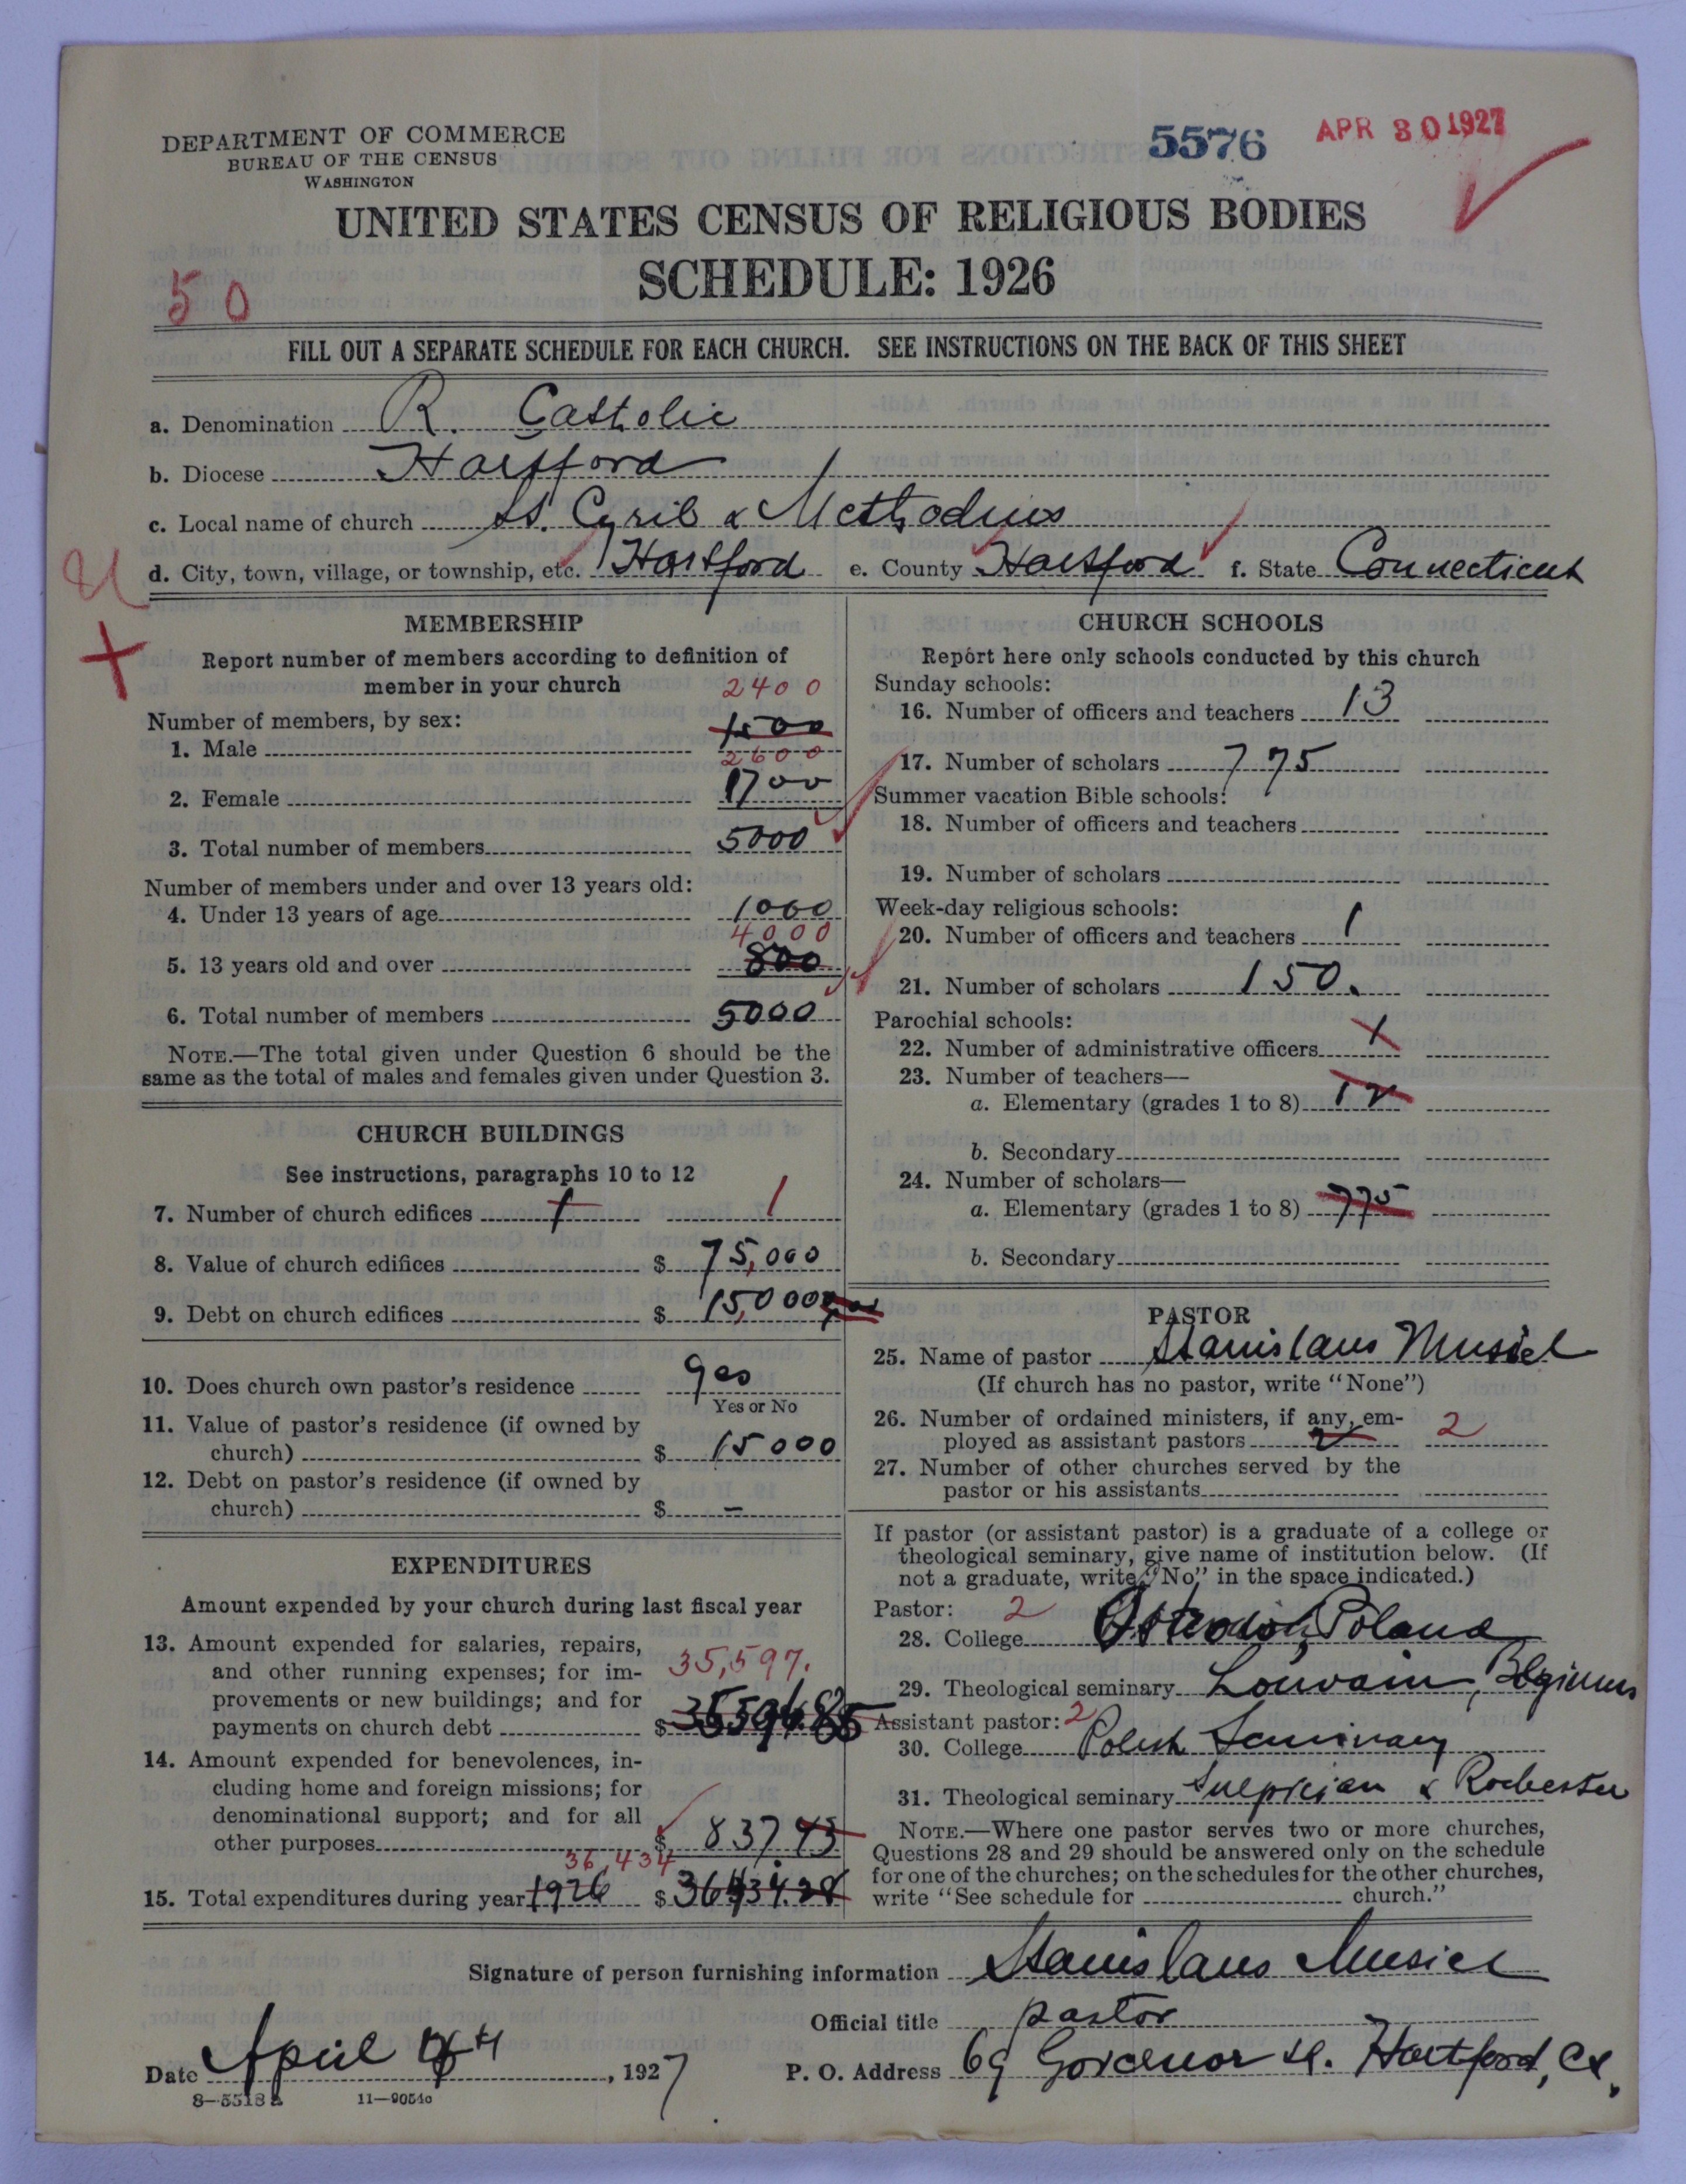 DEPARTMENT OF COMMERCE
BUREAU OF THE CENSUS
WASHINGTON
5576 APR 30 1927
UNITED STATES CENSUS OF RELIGIOUS BODIES
SCHEDULE: 1926
50
FILL OUT A SEPARATE SCHEDULE FOR EACH CHURCH. SEE INSTRUCTIONS ON THE BACK OF THIS SHEET
a. Denomination R. Catholic
b. Diocese Hartford
c. Local name of church St. Cyril & Methodius
d. City, town, village, or township, etc. Hartford e. County Hartford f. State Connecticut
MEMBERSHIP
Report number of members according to definition of
member in your church
2400
Number of members, by sex:
1. Male 1500
2600
2. Female 1700
3. Total number of members 5000
Number of members under and over 13 years old:
4. Under 13 years of age 1000
4000
5. 13 years old and over 800
6. Total number of members 5000
NOTE.—The total given under Question 6 should be the
same as the total of males and females given under Question 3.
CHURCH BUILDINGS
See instructions, paragraphs 10 to 12
7. Number of church edifices 1 1
8. Value of church edifices $ 75,000
9. Debt on church edifices $ 15,000
10. Does church own pastor's residence yes
Yes or No
11. Value of pastor's residence (if owned by
church) $ 15000
12. Debt on pastor's residence (if owned by
church) $ –
EXPENDITURES
Amount expended by your church during last fiscal year
13. Amount expended for salaries, repairs,
and other running expenses; for im-
35,597.
provements or new buildings; and for
payments on church debt $ 35596.85
14. Amount expended for benevolences, in-
cluding home and foreign missions; for
denominational support; and for all
other purposes $ 837.43
36,434
15. Total expenditures during year 1926 $ 36434.28
CHURCH SCHOOLS
Report here only schools conducted by this church
Sunday schools:
16. Number of officers and teachers 13
17. Number of scholars 775
Summer vacation Bible schools:
18. Number of officers and teachers
19. Number of scholars
Week-day religious schools:
20. Number of officers and teachers 1
21. Number of scholars 150.
Parochial schools:
22. Number of administrative officers 1
23. Number of teachers—
a. Elementary (grades 1 to 8) 12
b. Secondary
24. Number of scholars—
a. Elementary (grades 1 to 8) 775
b. Secondary
PASTOR
25. Name of pastor Stanislaus Musiel
(If church has no pastor, write "None")
26. Number of ordained ministers, if any, em-
ployed as assistant pastors 2 2
27. Number of other churches served by the
pastor or his assistants
If pastor (or assistant pastor) is a graduate of a college or
theological seminary, give name of institution below. (If
not a graduate, write "No" in the space indicated.)
Pastor: 2
28. College Poland
29. Theological seminary Louvain, Belgium
Assistant pastor: 2
30. College Polish Seminary
31. Theological seminary Sulpician & Rochester
NOTE.—Where one pastor serves two or more churches,
Questions 28 and 29 should be answered only on the schedule
for one of the churches; on the schedules for the other churches,
write "See schedule for church."
Signature of person furnishing information Stanislaus Musiel
Official title pastor
Date April , 1927 P. O. Address 69 Governor St. Hartford, Ct.
11—9054a